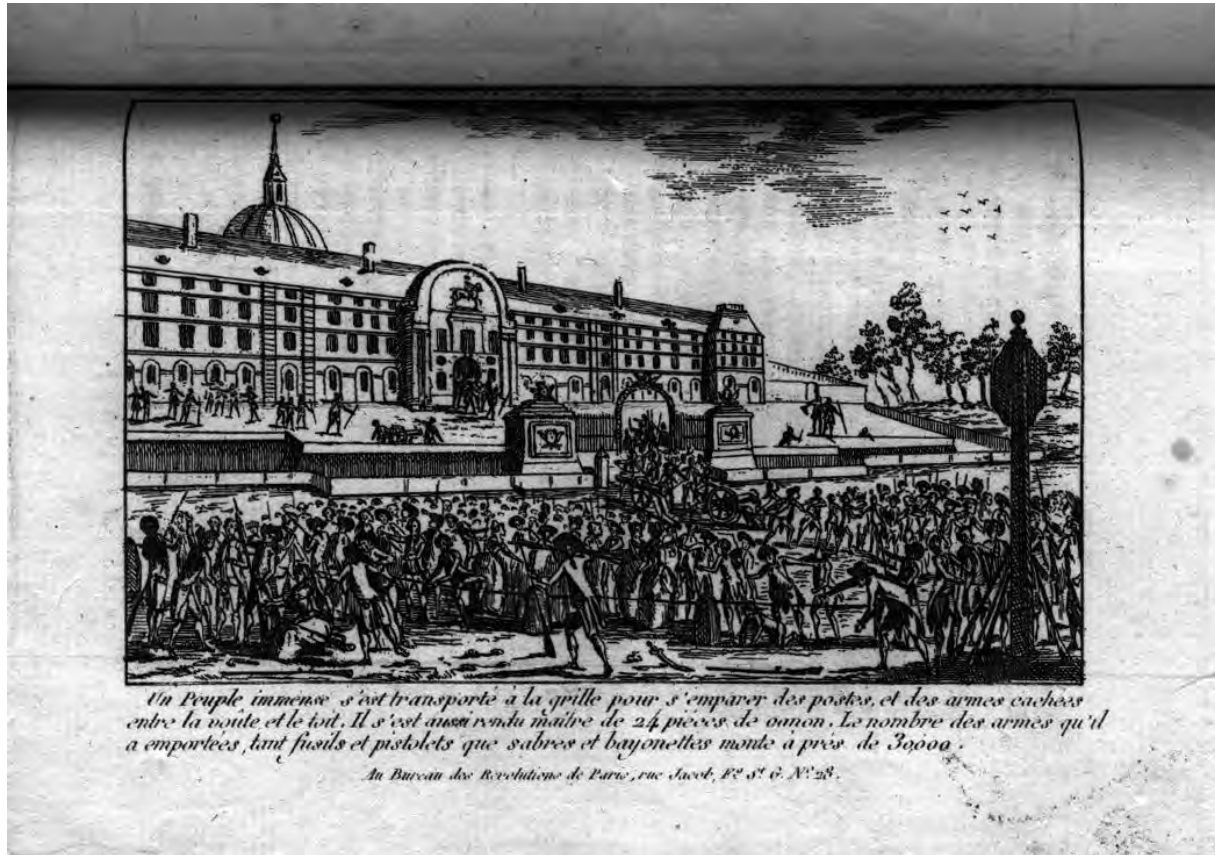 Un Peuple immense s'est transporté à la grille pour s'emparer des postes, et des armes cachées
entre la voûte et le toit. Il s'est aussi rendu maitre de 24 piéces de canon. Le nombre des armes qu'il
a emportées, tant fusils et pistolets que sabres et bayonettes monte à près de 30,000.
Au Bureau des Revolutions de Paris, rue Jacob, F.g S.t G. N.o 28.